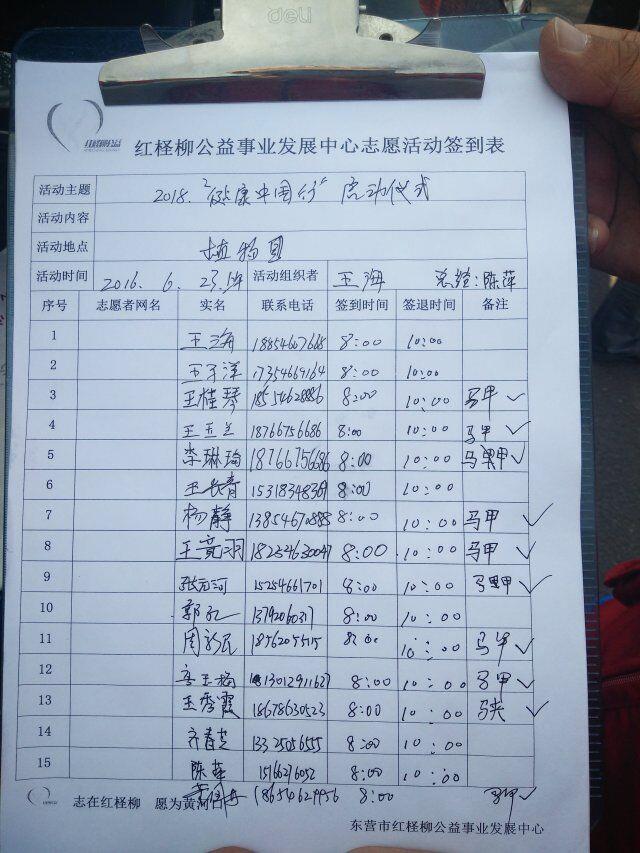 deli
红柽柳公益事业发展中心志愿活动签到表
活动主题 2018."健康中国行"启动仪式
活动内容
活动地点 植物园
活动时间 2016. 6. 23. 活动组织者 王海 总经:陈萍
序号 志愿者网名 实名 联系电话 签到时间 签退时间 备注
1 王海 18854607668 8:00 10:00
2 王子洋 17354669164 8:00 10:00
3 王桂琴 18554628886 8:00 10:00 马甲 ✓
4 王玉兰 18766756686 8:00 10:00 马甲 ✓
5 李琳瑜 18766756686 8:00 10:00 马甲 ✓
6 王长青 15318348369 8:00 10:00
7 杨静 13854670888 8:00 10:00 马甲 ✓
8 王竞羽 18254630047 8:00 10:00 马甲 ✓
9 张元河 15254661701 8:00 10:00 马甲 ✓
10 郭 13792060317 8:00 10:00
11 周新民 1856205515 8:00 10:00 马甲 ✓
12 李玉梅 13012911627 8:00 10:00 马甲 ✓
13 王秀霞 18678630523 8:00 10:00 马夹 ✓
14 齐春芝 133 25056555 8:00 10:00
15 陈萍 15166276052 8:00 10:00
18654629956 8:00 马甲 ✓
志在红柽柳 愿为黄河
东营市红柽柳公益事业发展中心